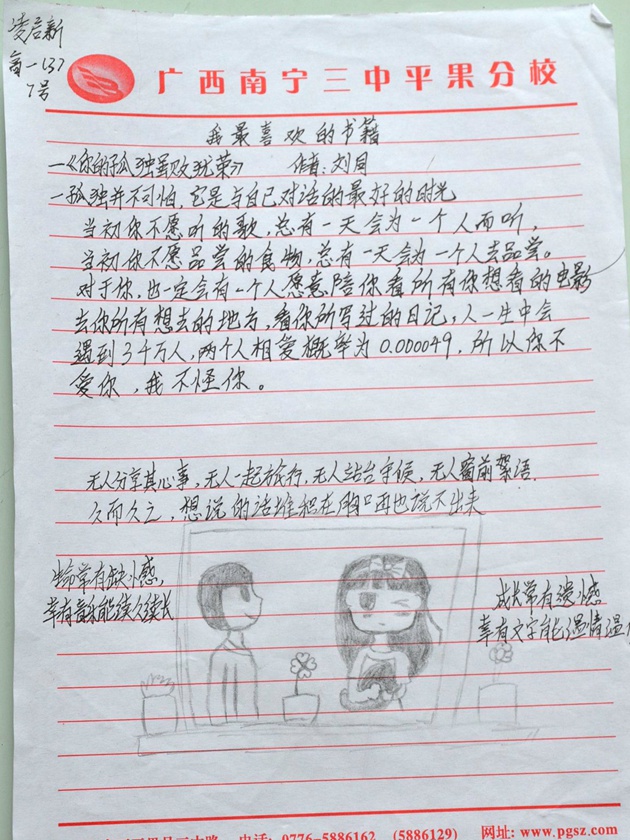 凌启新
高一(3)
7号
广西南宁三中平果分校
我最喜欢的书籍
—《你的孤独虽败犹荣》 作者:刘同
—孤独并不可怕,它是与自己对话的最好的时光
当初你不愿听的歌,总有一天会为一个人而听,
当初你不愿品尝的食物,总有一天会为一个人去品尝。
对于你,也一定会有一个人愿意陪你看所有你想看的电影
去你所有想去的地方,看你所写过的日记,人一生中会
遇到3千万人,两个人相爱概率为0.000049,所以你不
爱你,我不怪你。
无人分享其心事,无人一起旅行,无人站台守候,无人窗前絮语.
久而久之,想说的话堆积在胸口再也说不出来
生命常有缺憾,
幸有音乐能续久续长
成长常有遗憾
幸有文字能温情温
电话: 0776-5886162 (5886129) 网址: www.pgsz.com